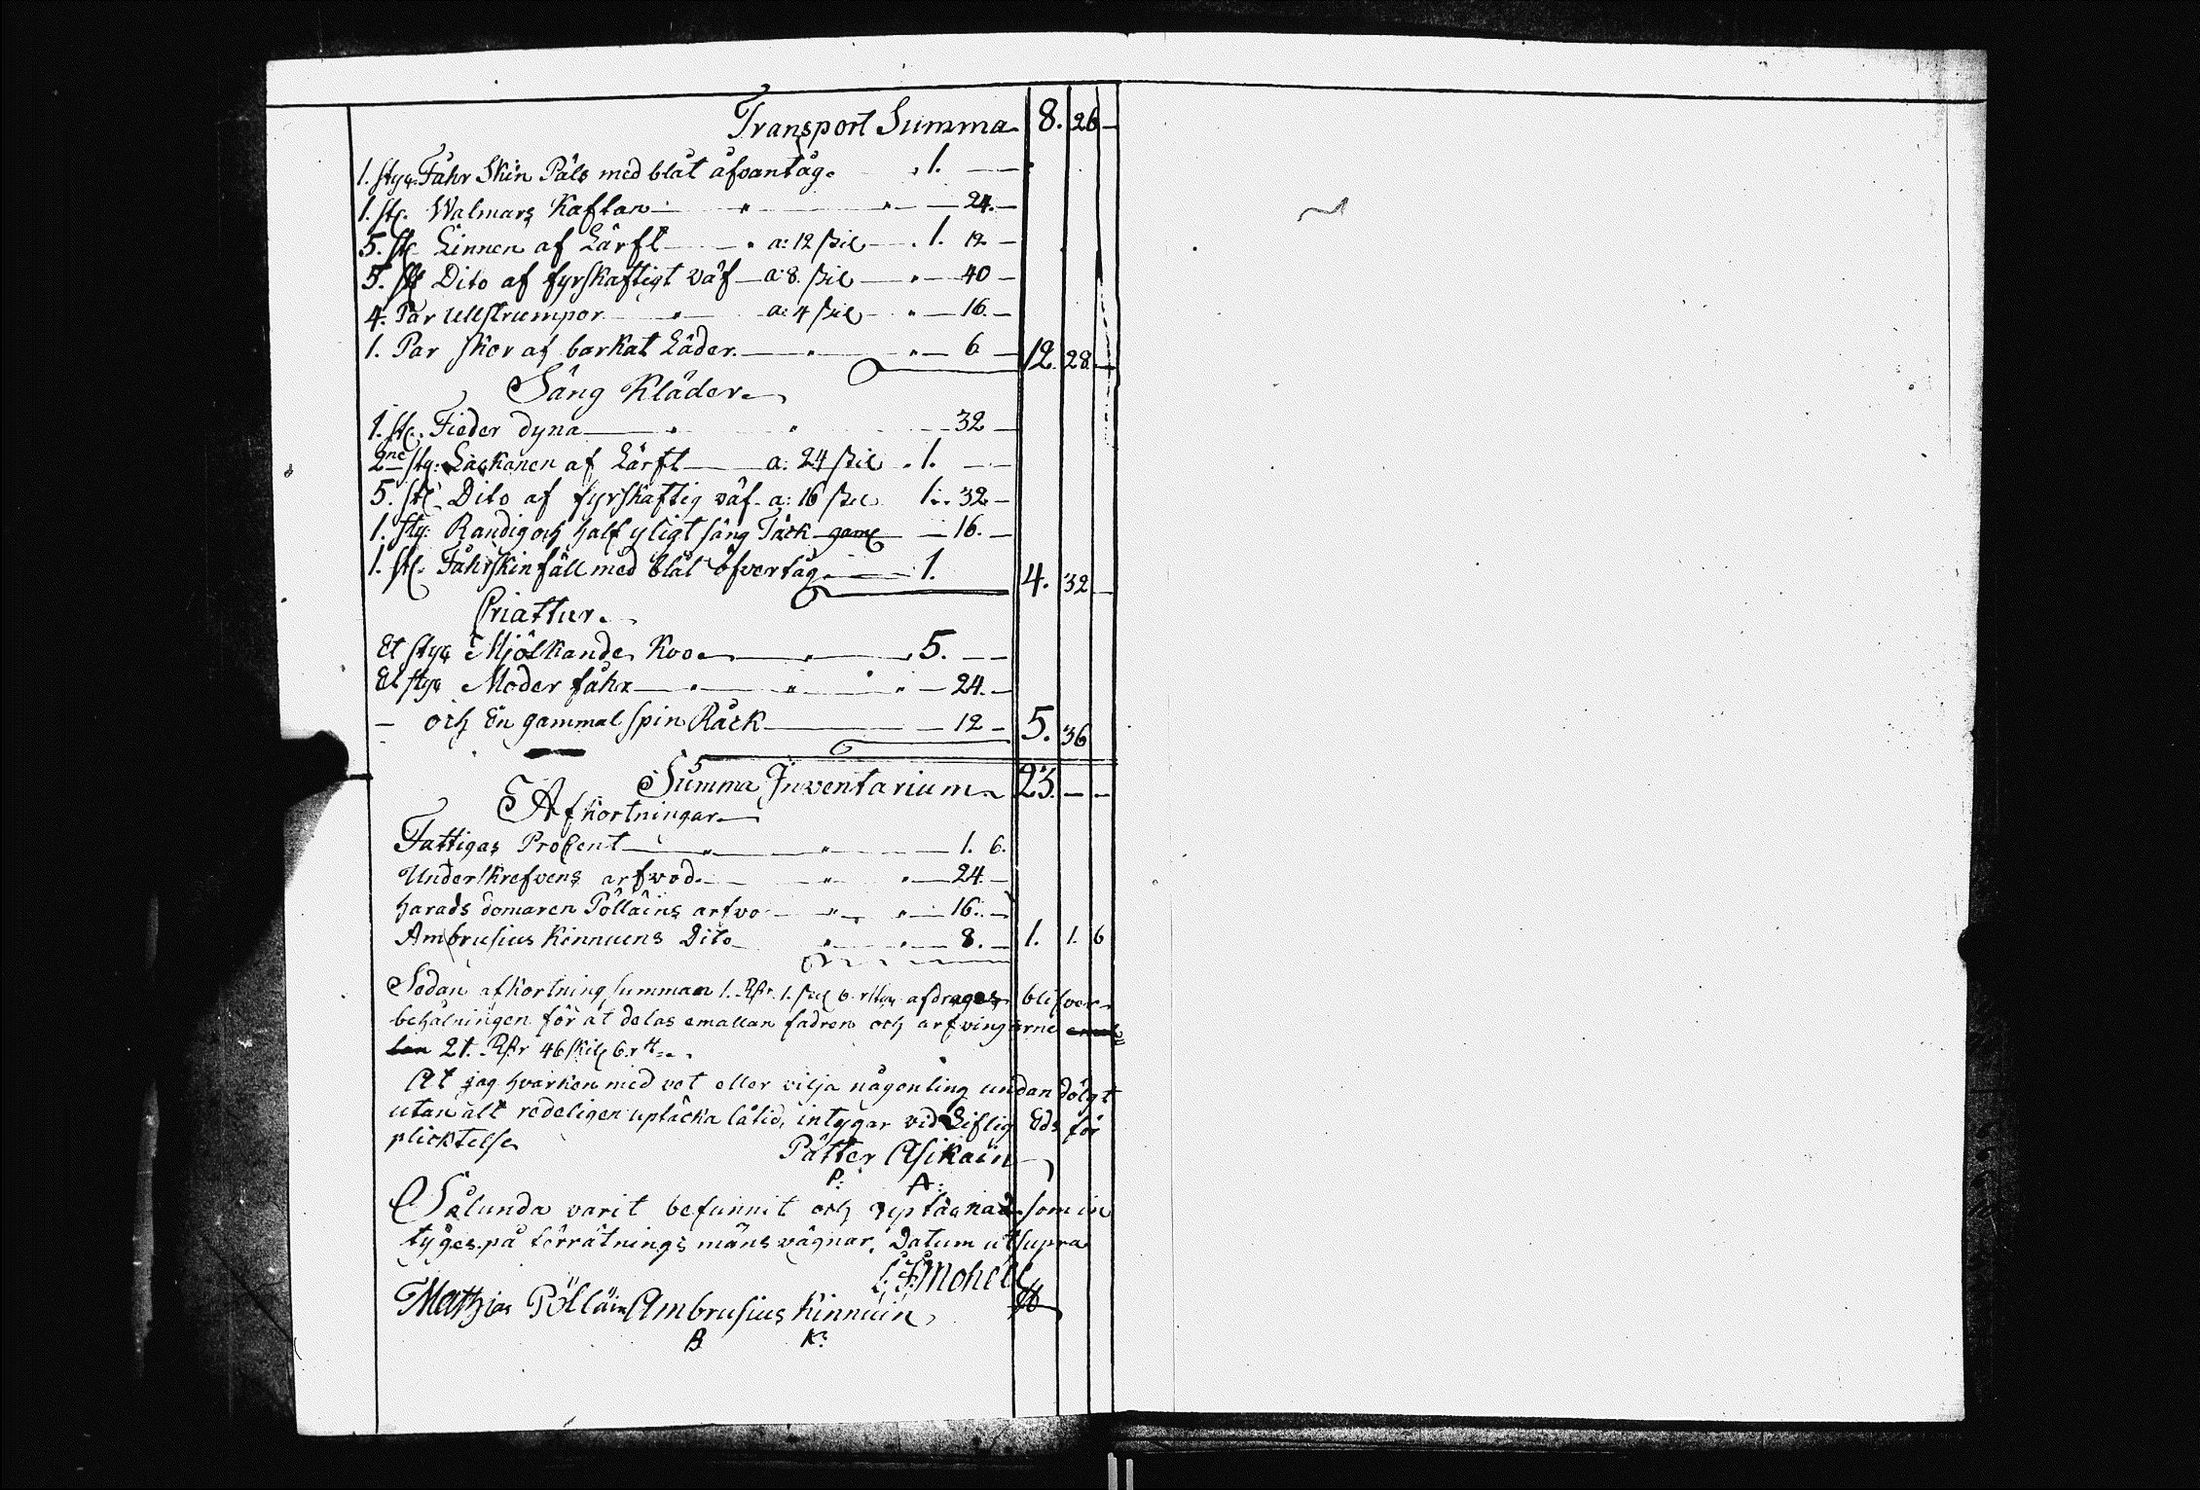 Transport Summa 8. 26 —
1. styq. Fåhr Skin Päls med blåt åfvantåg. 1. — —
1. st. Walmars Kaftan — " — " — 24. —
5. st. Linnen af Lärft — a: 12 skil — 1. 12 —
5. st Dito af fyrskaftigt väf — a: 8. skil — " — 40 —
4. Par Ullstrumpor — " — a: 4 skil — " — 16. —
1. Par skor af barkat Läder. — " — " — 6 — 12. 28. —
Säng Kläder
1. st. Fieder dyna — " — " — 32 —
2ne sty: Lackanen af Lärft — a: 24 skil . 1. — —
5. st. Dito af fyrskaftig väf. a: 16 skil 1. 32 —
1. sty: Randig och half yligt säng Täck gam — 16. —
1. st. Fåhrskinfäll med blåt öfvertåg. — 1. 4. 32 —
Criattur.
Et styq Mjölkande Koo — " — 5. — —
Et styq Moder fåhr — " — " — " — 24. —
— och En gammal spin Råck — 12 — 5. 36
Summa Inventarium 23. — —
Afkortningar
Fattigas Procent — " — " — 1. 6.
Underskrefvens arfwod. — " — " — 24. —
harads domaren Pölläins arfvo — " — " — 16. —
Ambrusius Kinnuens Dito — " — " — 8. — 1. 1. 6
Sedan afkortning summan 1. Rdr. 1. skil 6. afdrages blifver
behålningen för at delas emallan fadren och arfvingarne emal
lan 21. Rdr 46 skil 6. rt
At jag hvarken med vet eller vilja någenting undan dolgt
utan alt redeligen uptäcka låtid, intygar vid Liflig Eds för
plicktelse
Pätter Asikain
P: A:
Sålunda varit befunnit och uptäcknad som in
tyges på förrätnings mäns vägnar. Datum utsupra
Mathias Pölläin Ambrusius Kinnuin
A K: